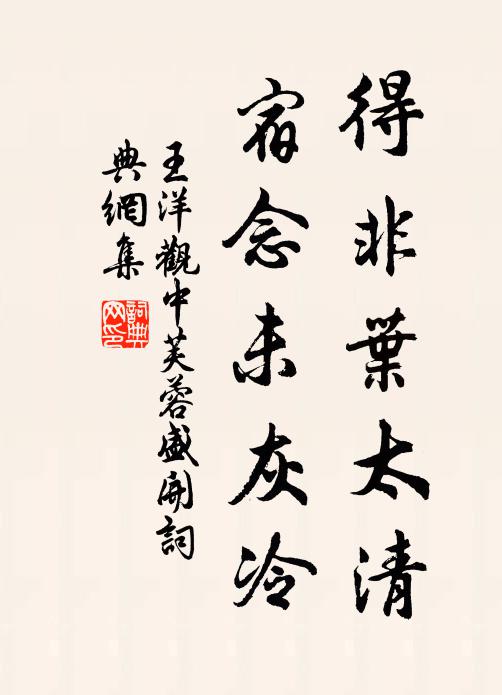 得非葉太清
宿念未灰冷
王洋觀中芙蓉盛開詞
典網集
詞典網印